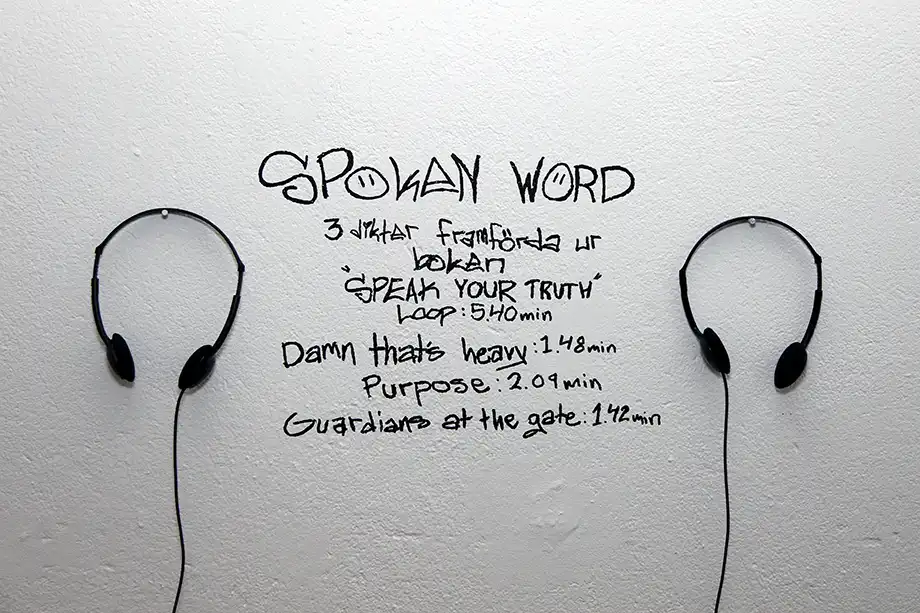 SPOKEN WORD
3 dikter framförda ur
boken
"SPEAK YOUR TRUTH"
LOOP: 5.40min
Damn that's heavy: 1.48min
Purpose: 2.09min
Guardians at the gate: 1.42min